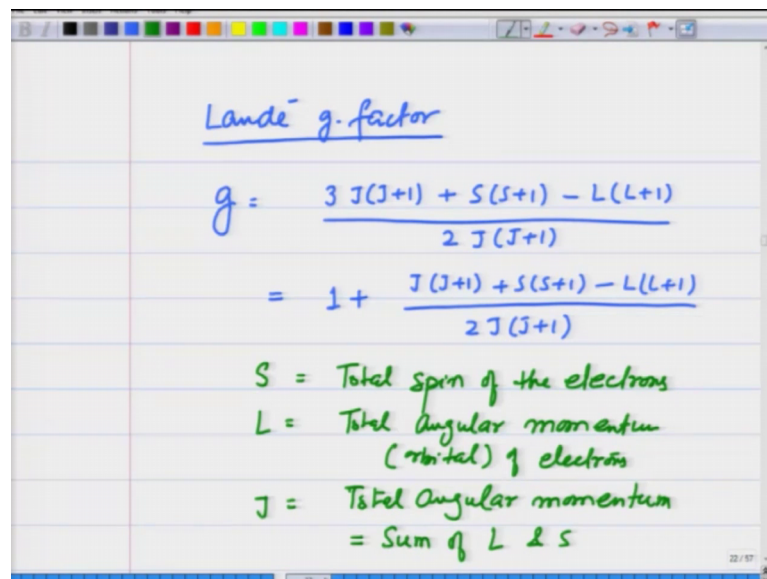 Landé g. factor
g = 3 J(J+1) + S(S+1) - L(L+1) / 2 J(J+1)
= 1 + J(J+1) + S(S+1) - L(L+1) / 2 J(J+1)
S = Total spin of the electrons
L = Total angular momentum
(orbital) of electrons
J = Total angular momentum
= Sum of L & S
22/57